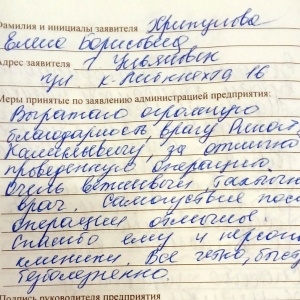 Фамилия и инициалы заявителя Хрипунова
Елена Борисовна
Адрес заявителя Ульяновск
ул К. Либкнехта 16
Меры принятые по заявлению администрацией предприятия:
Выражаю огромную
благодарность врачу Ринату
Камильевичу, за отлично
проведенную операцию.
Очень вежливый, тактичный
врач. Самочувствие после
операции отличное.
Спасибо ему и персоналу
клиники. Все четко, быстро,
безболезненно.
Подпись руководителя предприятия